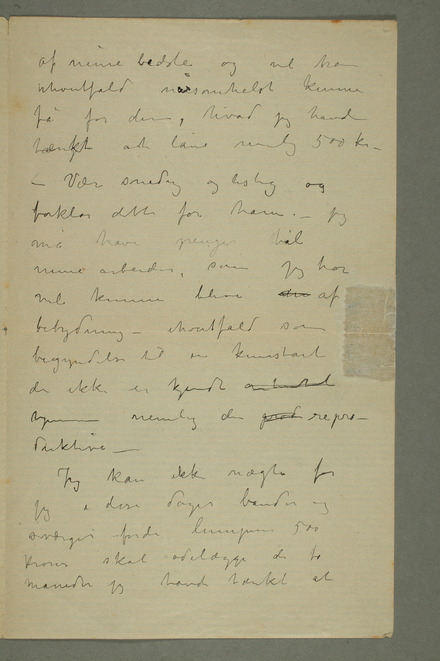 af mine bedste og vil han
ihvertfald nåsomhelst kunne
få for dem, hvad jeg havde
tænkt at låne nemlig 500 kr –
– Vær snedig og listig og
forklar dette for ham. – jeg
må have penger til
mine arbeider, som jeg tror
vil kunne blive af
betydning – ihvertfald som
begyndelse til en kunstart
der ikke er kjendt
nemlig den repro-
duktive –
Jeg kan ikke nægte for
jeg i disse dager bander og
sværger fordi lumpne 500
kroner skal ødelægge de to
måneder jeg havde tænkt at